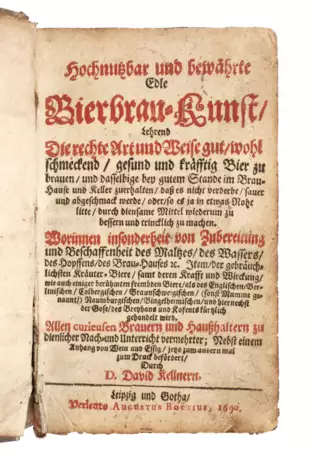 Hochnutzbar und bewährte
Edle
Bierbrau-Kunst/
Lehrend
Die rechte Art und Weise gut/wohl
schmeckend/ gesund und kräfftig Bier zu
brauen/ und dasselbige bey gutem Stande im Brau-
Hause und Keller zuerhalten/ daß es nicht verderbe/sauer
und abgeschmack werde/ oder/so es ja in etwas Noht
litte/ durch diensame Mittel wiederum zu
bessern und trincklich zu machen.
Worinnen insonderheit von Zubereitung
und Beschaffenheit des Maltzes/ des Wassers/
des Hopffens/des Brau-Hauses ꝛc. Item/der gebräuch-
lichsten Kräuter-Biere/ samt deren Krafft und Wirckung/
wie auch einiger berühmten frembden Biere/als des Englischen/Ber-
linischen/Colbergischen/ Braunschweigischen/ (sonst Mumme ge-
nannt/) Naumburgischen/ und hiernechst
der Gose/des Breyhans und Kofents kürtzlich
gehandelt wird.
Allen curieusen Brauern und Haußhaltern zu
dienlicher Nach- und Unterricht vermehrter; Nebst einem
Anhang von Wein und Essig/ jetzo zum andern mal
zum Druck befördert/
Durch
D. David Kellnern.
Leipzig und Gotha/
Verlegts AUGUSTUS BOETIUS, 1690.